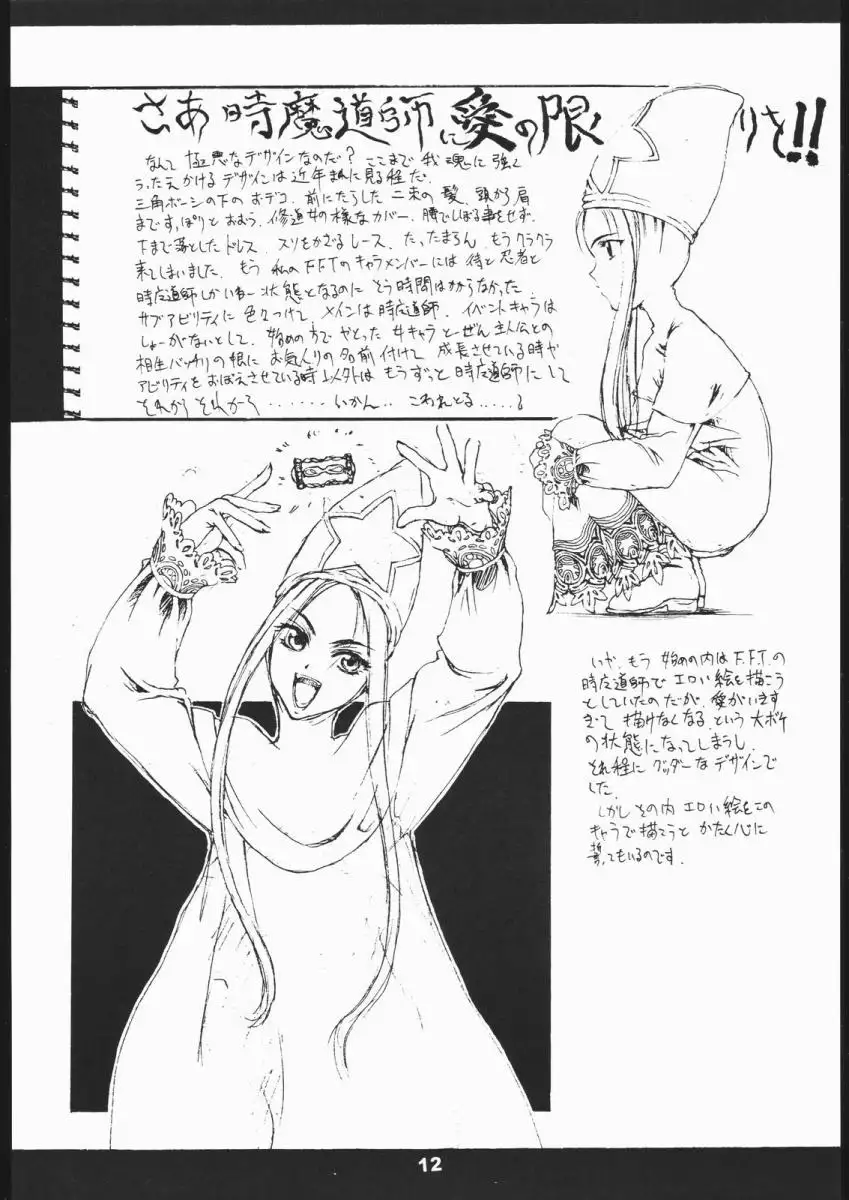 さあ時魔道師に愛の限りを!!
なんて極悪なデザインなのだ？ここまで我魂に強く
うったえかけるデザインは近年まれに見る程だ.
三角ボーシの下のおデコ.前にたらした二束の髪、頭から肩
まですっぽりとおおう.修道女の様なカバー.腰でしぼる事をせず.
下まで落としたドレス.スソをかざるレース.たったまらん.もうクラクラ
来てしまいました.もう私のF.F.Tのキャラメンバーには侍と忍者と
時魔道師しかいねー状態となるのにそう時間はかからなかった.
サブアビリティに色々つけてメインは時魔道師.イベントキャラは
しょーがないとして.始めの方でやとった女キャラとーぜん主人公との
相生バッチリの娘にお気入りの名前付けて成長させている時や
アビリティをおぼえさせている時以外はもうずっと時魔道師にして
それからそれから.......いかん..こわれとる.....
いや.もう始めの内はF.F.T.の
時魔道師でエロい絵を描こう
としていたのだが.愛がいきす
ぎて描けなくなる.という大ボケ
の状態になってしまうし.
それ程にグッダーなデザインで
した.
しかしその内エロい絵をこの
キャラで描こうとかたく心に
誓ってもいるのです.
12